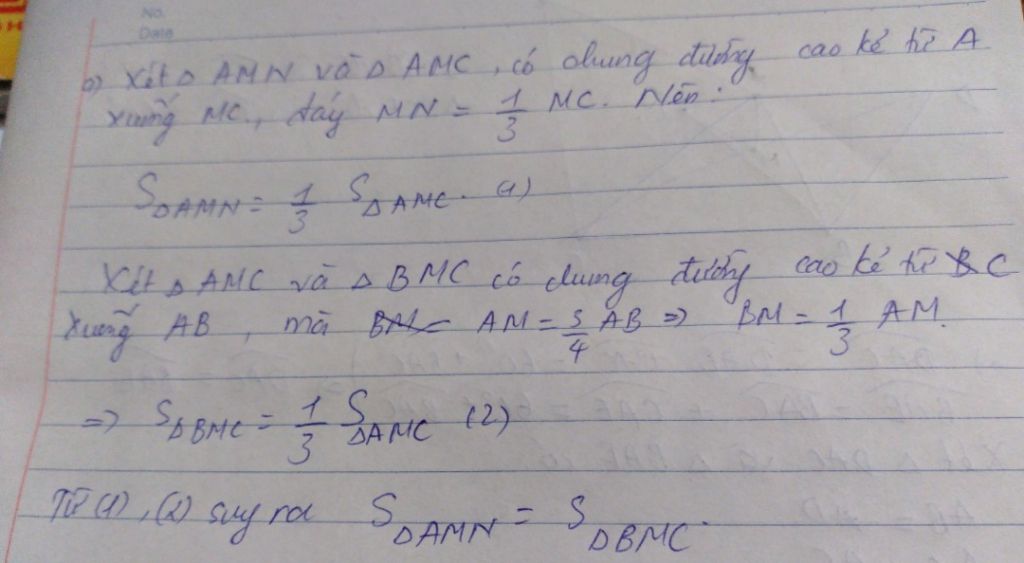 No.
Date
a) Xét Δ AMN và Δ AMC, có chung đường cao kẻ từ A
xuống MC, đáy MN = 1/3 MC. Nên:
SΔAMN = 1/3 SΔAMC. (1)
Xét Δ AMC và Δ BMC có chung đường cao kẻ từ C
xuống AB, mà AM = 3/4 AB => BM = 1/3 AM.
=> SΔBMC = 1/3 SΔAMC (2)
Từ (1), (2) suy ra SΔAMN = SΔBMC.